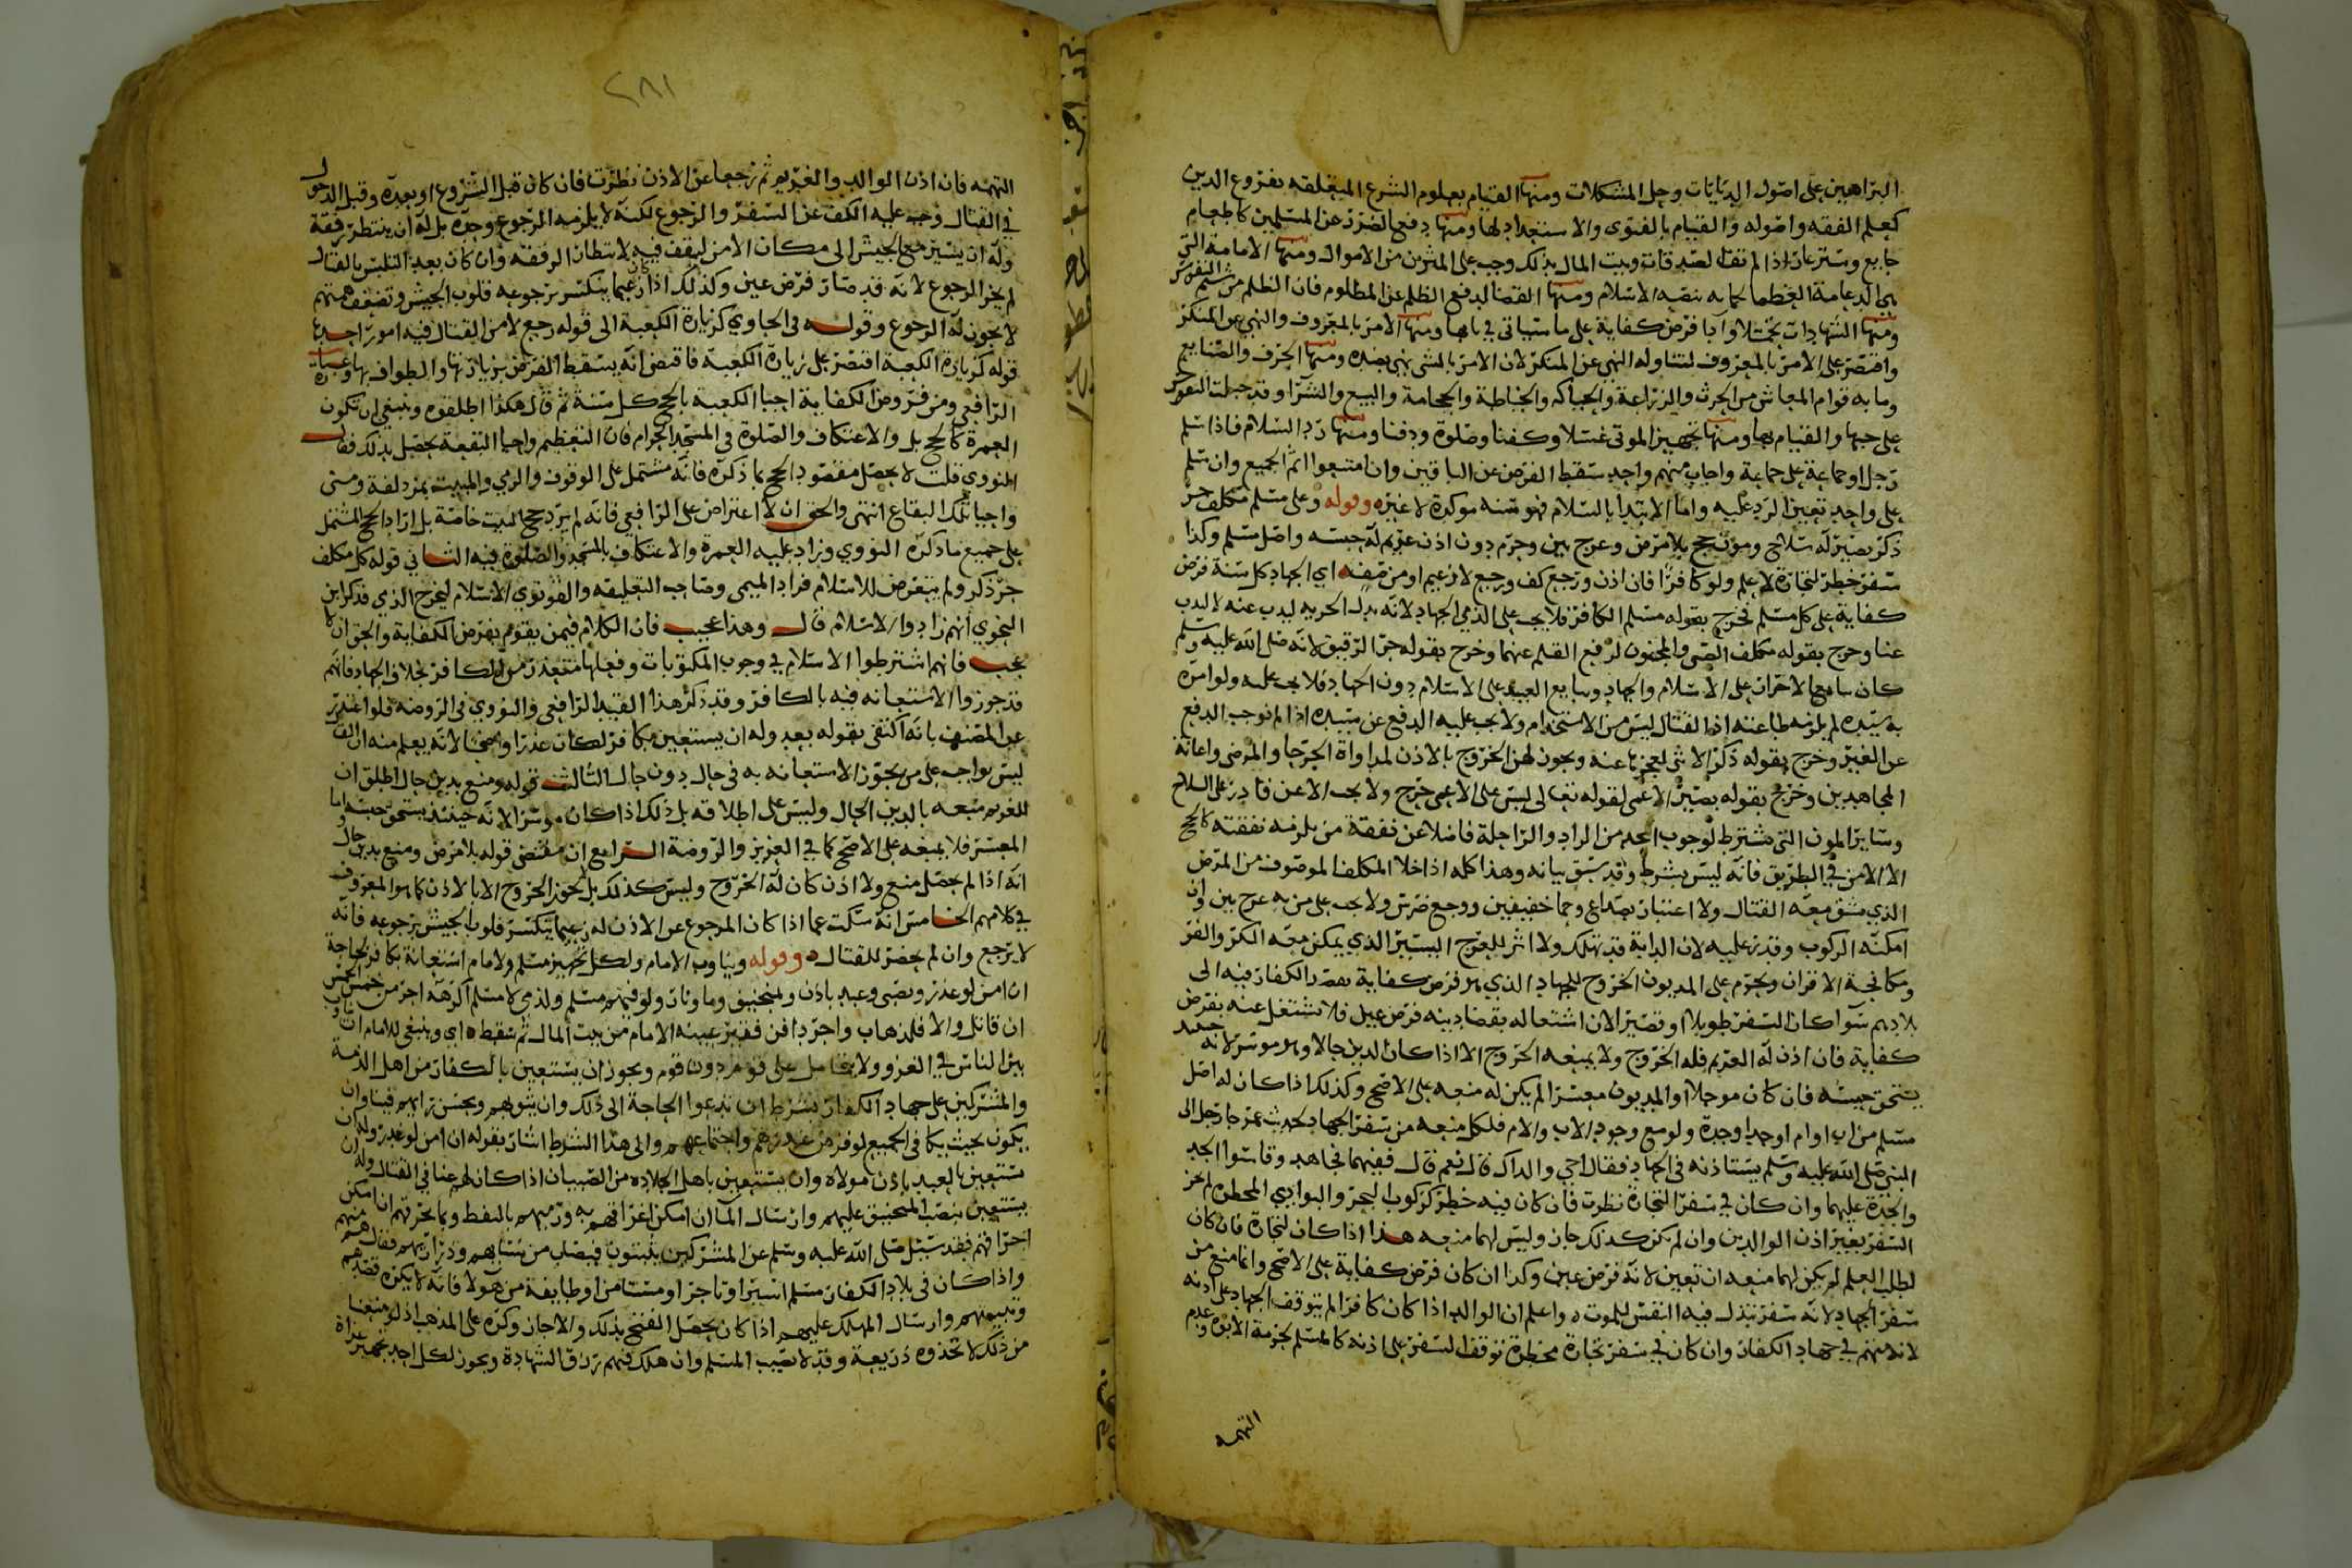 البراهين على اصول الديانات وحل المشكلات ومنها القيام بعلوم الشرع المتعلقه بفروع الدين
كعلم الفقه واصوله والقيام بالفتوى والاستعداد لها ومنها دفع الضرر عن المسلمين كاطعام
جايع وستر عار اذا لم تف الصدقات وبيت المال بذلك وجب على المثرين من الاموال ومنها الامامة التي
هي الدعامة العظما لحمايه بيضه الاسلام ومنها القضا لدفع الظلم عن المظلوم فان الظلم من شيم النفوس
ومنها الشهادات تحملا وادا فرض كفاية على ما سياتي في بابها ومنها الامر بالمعروف والنهي عن المنكر
واقتصر على الامر بالمعروف لتناوله النهي عن المنكر لان الامر بالشي نهي بضده ومنها الحرف والصنايع
وما به قوام المعاش من الحرث والزراعة والحياكه والخياطة والحجامة والبيع والشرا وقد جبلت النفوس
على حبها والقيام بها ومنها تجهيز الموتى غسلا وكفنا وصلوة ودفنا ومنها رد السلام فاذا سلم
رجل او جماعة على جماعة واجاب منهم واحد سقط الفرض عن الباقين وان امتنعوا اثم الجميع وان سلم
على واحد تعين الرد عليه واما الابتدا بالسلام فهو سنه موكدة لا غيره وقوله وعلى مسلم مكلف حر
ذكر بصير له سلاح ومون حج بلا مرض وعرج بين وحرم دون اذن غريم له حبسه واصل مسلم وكذا
سفر خطر لتجارة لا علم ولو كافرا فان اذن ورجع كف ورجع لا زعيم او من صفه اي الجهاد كل سنة فرض
كفاية على كل مسلم فخرج بقوله مسلم الكافر فلا يجب على الذمي الجهاد لانه بذل الجزيه ليذب عنه لا ليذب
عنا وخرج بقوله مكلف الصبي والمجنون لرفع القلم عنهما وخرج بقوله حر الرقيق لانه صلى الله عليه وسلم
كان يبايع الاحرار على الاسلام والجهاد ويبايع العبيد على الاسلام دون الجهاد فلا يجب عليه ولو امره
به سيده لم يلزمه طاعته اذ القتال ليس من الاستخدام ولا يجب عليه الدفع عن سيده اذا لم نوجب الدفع
عن الغير وخرج بقوله ذكر الانثى لعجزها عنه ويجوز لهن الخروج بالاذن لمداواة الجرحا والمرضى واعانة
المجاهدين وخرج بقوله بصير الاعمى لقوله تعالى ليس على الاعمى حرج ولا يجب الا عن قادر على السلاح
وساير المون التي تشترط لوجوب الحج من الزاد والراحلة فاضلا عن نفقة من يلزمه نفقته كالحج
الا الامن في الطريق فانه ليس بشرط وقد سبق بيانه وهذا كله اذا خلا المكلف الموصوف من المرض
الذي يشق معه القتال ولا اعتبار بصداع وحما خفيفين ووجع ضرس ولا يجب على من به عرج بين وان
امكنه الركوب وقدر عليه لان الدابة قد تهلك ولا اثر للعرج اليسير الذي يمكن معه الكر والفر
ومكافحة الاقران ويحرم على المديون الخروج للجهاد الذي هو فرض كفاية بقصد الكفار فيه الى
بلادهم سوا كان السفر طويلا او قصيرا لان اشتغاله بقضا دينه فرض عين فلا تشتغل عنه بفرض
كفاية فان اذن له الغريم فله الخروج ولا يمنعه الخروج الا اذا كان الدين حالا وهو موسر لانه حينيذ
يستحق حبسه فان كان موجلا او المديون معسرا لم يكن له منعه على الاصح وكذلك اذا كان له اصل
مسلم من اب او ام او جد او جدة ولو مع وجود الاب والام فلكل منعه من سفر الجهاد لحديث عمر جا رجل الى
النبي صلى الله عليه وسلم يستاذنه في الجهاد فقال احي والداك قال نعم قال ففيهما فجاهد وقاسوا الجد
والجدة عليهما وان كان في سفر التجارة نظرت فان كان فيه خطر كركوب البحر والبوادي المخطره لم يجز
السفر بغير اذن الوالدين وان لم يكن كذلك جاز وليس لهما منعه هذا اذا كان لتجارة فان كان
لطلب العلم لم يكن لهما منعه ان تعين لانه فرض عين وكذا ان كان فرض كفاية على الاصح وانما منع من
سفر الجهاد لانه سفر تبذل فيه النفس للموت واعلم ان الوالد اذا كان كافرا لم يتوقف الجهاد على اذنه
لانه متهم في جهاد الكفار وان كان في سفر تجارة مخطرة توقف السفر على اذنه كالمسلم لحرمة الابوه وعدم
التهمه
٢٨١
التهمه فان اذن الوالد والغريم ثم رجعا عن الاذن نظرت فان كان قبل الشروع او بعده وقبل الدخول
في القتال وجب عليه الكف عن السفر والرجوع لكنه لا يلزمه الرجوع وحده بل له ان ينتظر رفقة
وله ان يسير مع الجيش الى مكان الامن ليقف فيه لانتظار الرفقة وان كان بعد التلبس بالقتال
لم يجز الرجوع لانه قد صار فرض عين وكذلك اذا كان زعيما ينكسر برجوعه قلوب الجيش وتضعف همتهم
لا يجوز له الرجوع وقوله في الحاوي كزيارة الكعبة الى قوله رجع لا من القتال فيه امور احدها
قوله كزيارة الكعبة اقتصر على زيارة الكعبة فاقتضى انه يسقط الفرض بزيارتها والطواف بها وعبارة
الرافعي ومن فروض الكفاية احيا الكعبة بالحج كل سنة ثم قال هكذا اطلقوه وينبغي ان تكون
العمرة كالحج بل والاعتكاف والصلوة في المسجد الحرام فان التعظيم واحيا البقعة يحصل بذلك فقال
النووي قلت لا يحصل مقصود الحج بما ذكره فانه مشتمل على الوقوف والرمي والمبيت بمزدلفة ومنى
واحيا تلك البقاع انتهى والحق ان لا اعتراض على الرافعي فانه لم يرد حج البيت خاصة بل اراد الحج المشتمل
على جميع ما ذكره النووي وزاد عليه العمرة والاعتكاف بالمسجد والصلوة فيه الثاني قوله كل مكلف
حر ذكر ولم يتعرض للاسلام فزاد الميمي وصاحب التعليقه والقونوي الاسلام ليخرج الذمي فذكر ابن
النحوي انهم زادوا الاسلام قال وهذا عجيب فان الكلام فيمن يقوم بفرض الكفاية والحق ان لا
عجب فانهم اشترطوا الاسلام في وجوب المكتوبات وفعلها متعذر من الكافر بخلاف الجهاد فانهم
قد جوزوا الاستعانه فيه بالكافر وقد ذكر هذا القيد الرافعي والنووي في الروضه فلو اعتذر
عن المصنف بانه اكتفى بقوله بعد وله ان يستعين بكافر لكان عذرا واضحا لانه يعلم منه ان القتال
ليس بواجب على من يجوز الاستعانه به في حال دون حال الثالث قوله ومنع بدين حال اطلق ان
للغريم منعه بالدين الحال وليس على اطلاقه بل ذلك اذا كان موسرا لانه حينئذ يستحق حبسه اما
المعسر فلا يمنعه على الاصح كما في العزيز والروضة الرابع ان مقتضى قوله بلا مرض ومنع بدين حال
انه اذا لم يحصل منع ولا اذن كان له الخروج وليس كذلك بل لا يجوز الخروج الا بالاذن كما هو المعروف
في كلامهم الخامس انه سكت عما اذا كان المرجوع عن الاذن له زعيما ينكسر قلوب الجيش برجوعه فانه
لا يرجع وان لم يحضر للقتال وقوله ويناوب الامام ولكل تجهيز مسلم ولامام استعانة بكافر لحاجة
ان امن لو غدر وبصبي وعبد باذن وبمنجنيق وما ونار ولو فيهم مسلم ولذمي لا مسلم اكرهه اجر من خمس الخمس
ان قاتل والا فلذهاب واجر دافن فقير عينه الامام من بيت المال ثم سقط اي وينبغي للامام ان يناوب
بين الناس في الغزو ولا يتحامل على قوم دون قوم ويجوز ان يستعين بالكفار من اهل الذمة
والمشركين على جهاد الكفار بشرط ان تدعوا الحاجة الى ذلك وان يثق بهم ويحسن رايهم فينا وان
يكون بحيث يكافي الجميع لو فرض غدرهم واجتماعهم والى هذا الشرط اشار بقوله ان امن لو غدر وله ان
يستعين بالعبد باذن مولاه وان يستعين باهل الجلادة من الصبيان اذا كان لهم غنا في القتال وله ان
يستعين بنصب المنجنيق عليهم وارسال الما ان امكن اغراقهم به ورميهم بالنفط وبما يحرقهم ان امكن
احراقهم فقد سئل صلى الله عليه وسلم عن المشركين يبيتون فيصاب من نسايهم وذراريهم فقال هم منهم
واذا كان في بلاد الكفار مسلم اسير او تاجر او مستامن او طايفة من هولا فانه لا يكره قصدهم
وتبييتهم وارسال المهلك عليهم اذا كان يحصل الفتح بذلك والا جاز وكره على المذهب اذ لو منعنا
من ذلك لاتخذوه ذريعة وقد لا يصيب المسلم وان هلك فيهم رزق الشهادة ويجوز لكل احد تجهيز غزاة